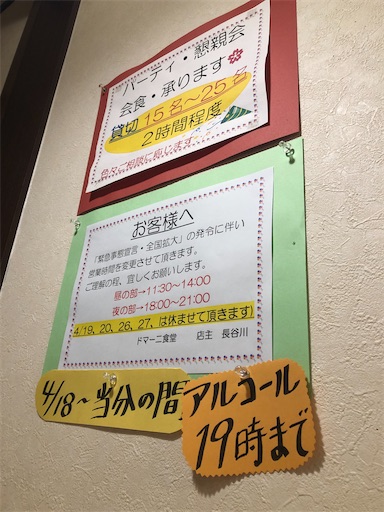 パーティ・懇親会
会食・承ります
貸切 15名～25名
2時間程度
色々ご相談に応じます。
お客様へ
「緊急事態宣言・全国拡大」の発令に伴い
営業時間を変更させて頂きます。
ご理解の程、宜しくお願いします。
昼の部→11:30～14:00
夜の部→18:00～21:00
4/19、20、26、27、は休ませて頂きます)
ドマーニ食堂 店主 長谷川
4/18～当分の間
アルコール
19時まで